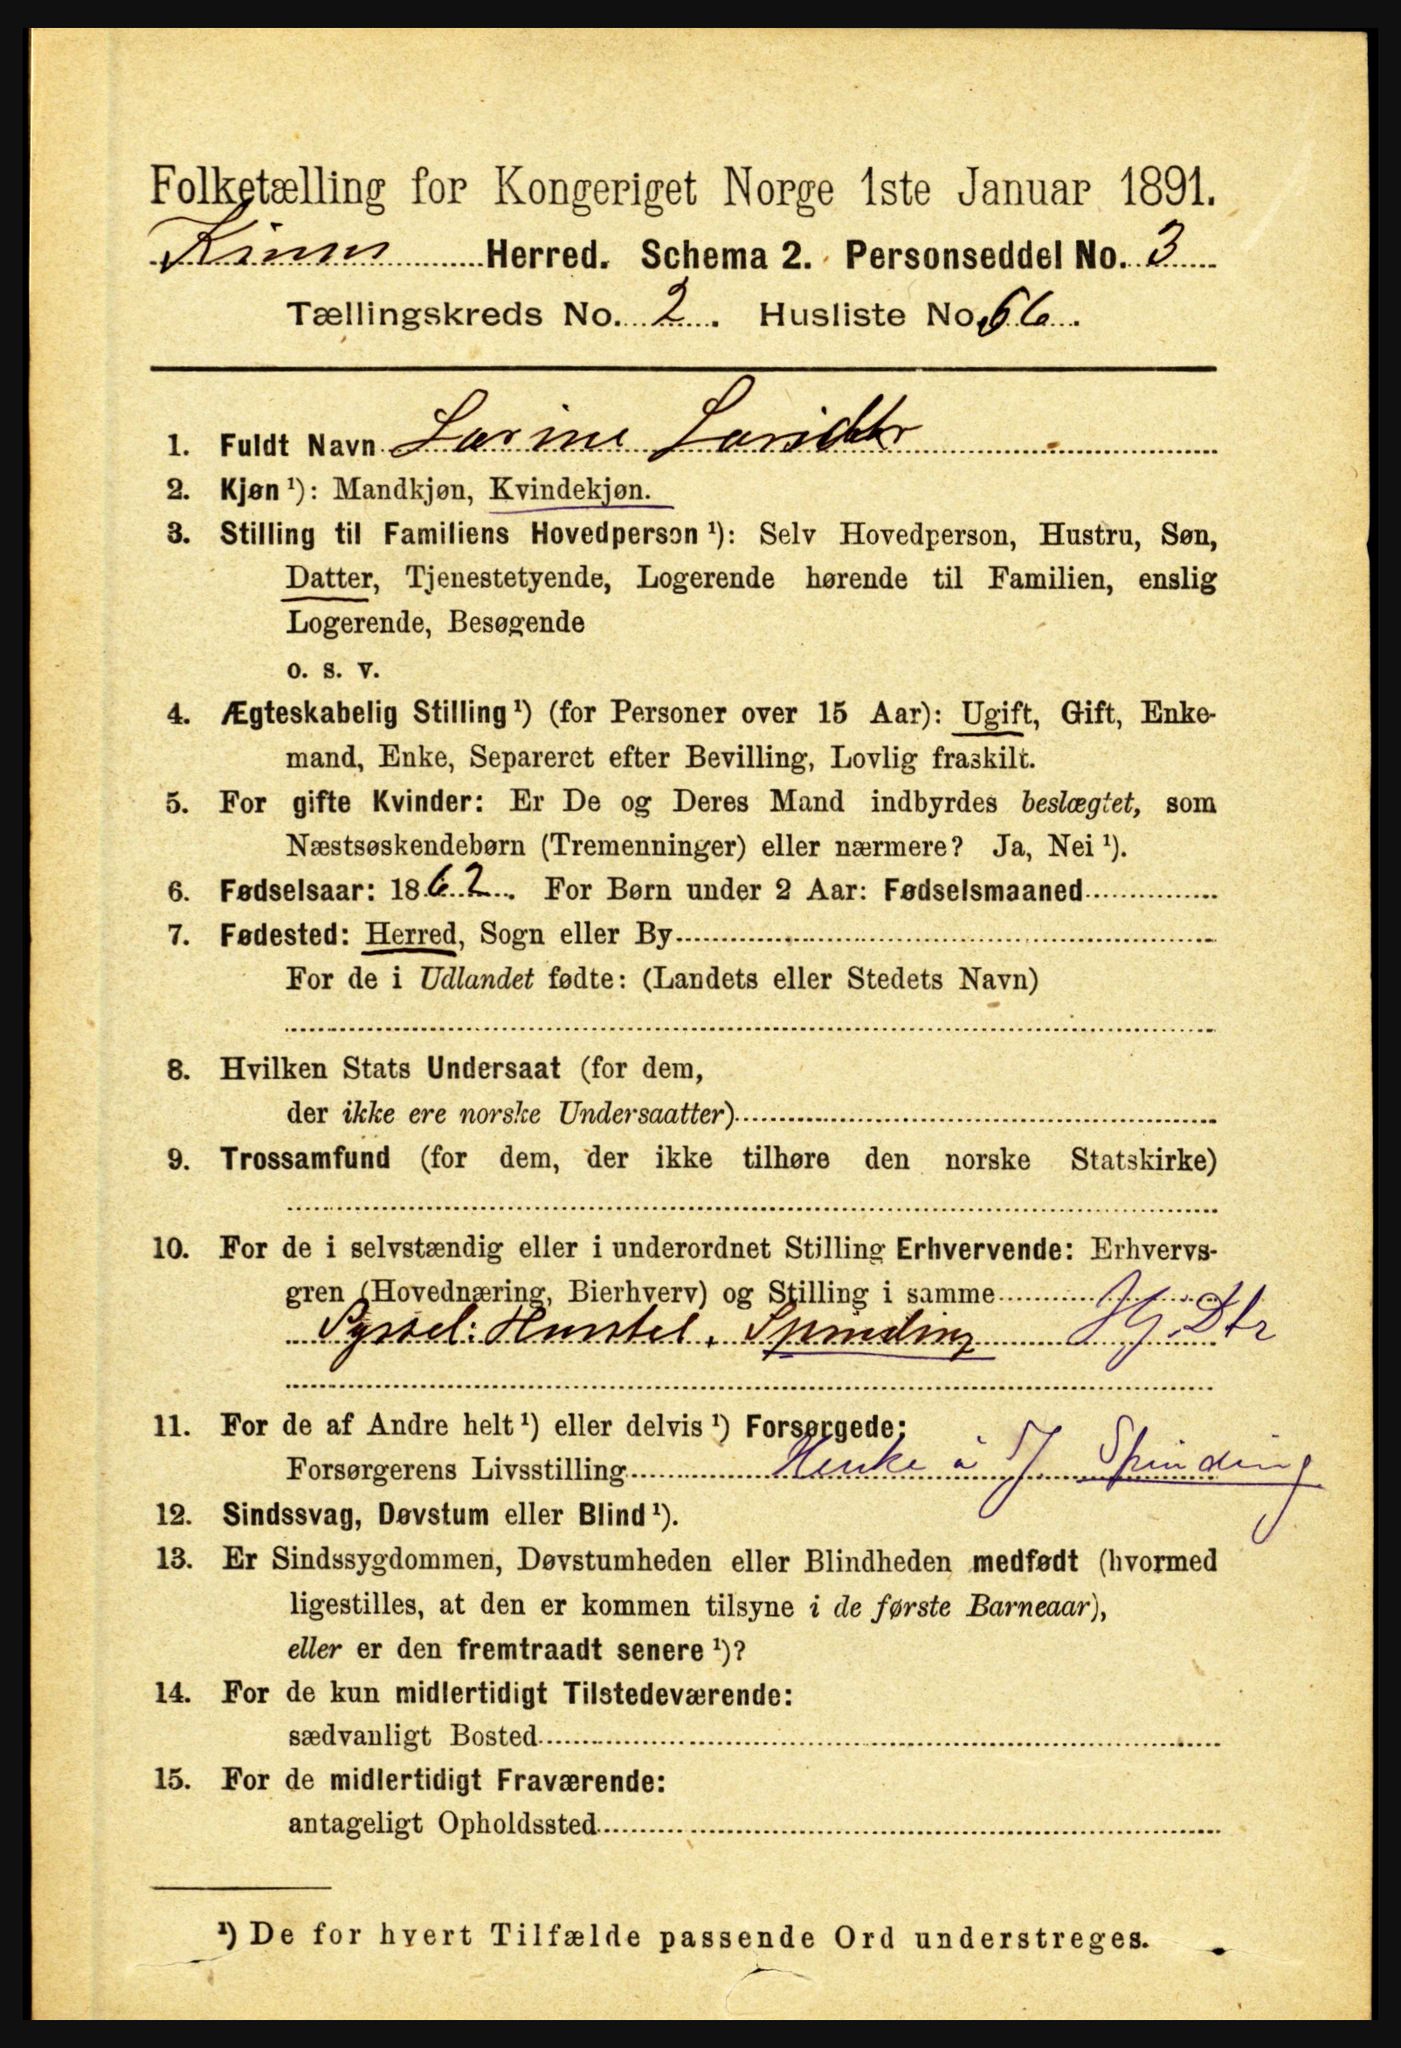 Folketælling for Kongeriget Norge 1ste Januar 1891.
Kinn Herred. Schema 2. Personseddel No. 3
Tællingskreds No. 2. Husliste No. 56.
1. Fuldt Navn Larine Larsdtr
2. Kjøn ¹): Mandkjøn, Kvindekjøn.
3. Stilling til Familiens Hovedperson ¹): Selv Hovedperson, Hustru, Søn,
Datter, Tjenestetyende, Logerende hørende til Familien, enslig
Logerende, Besøgende
o. s. v.
4. Ægteskabelig Stilling ¹) (for Personer over 15 Aar): Ugift, Gift, Enke-
mand, Enke, Separeret efter Bevilling, Lovlig fraskilt.
5. For gifte Kvinder: Er De og Deres Mand indbyrdes beslægtet, som
Næstsøskendebørn (Tremenninger) eller nærmere? Ja, Nei ¹).
6. Fødselsaar: 1862. For Børn under 2 Aar: Fødselsmaaned
7. Fødested: Herred, Sogn eller By
For de i Udlandet fødte: (Landets eller Stedets Navn)
8. Hvilken Stats Undersaat (for dem,
der ikke ere norske Undersaatter)
9. Trossamfund (for dem, der ikke tilhøre den norske Statskirke)
10. For de i selvstændig eller i underordnet Stilling Erhvervende: Erhvervs-
gren (Hovednæring, Bierhverv) og Stilling i samme
Syssel: Huustel, Spinding Hj. Dtr
11. For de af Andre helt ¹) eller delvis ¹) Forsørgede:
Forsørgerens Livsstilling Spinding
12. Sindssvag, Døvstum eller Blind ¹).
13. Er Sindssygdommen, Døvstumheden eller Blindheden medfødt (hvormed
ligestilles, at den er kommen tilsyne i de første Barneaar),
eller er den fremtraadt senere ¹)?
14. For de kun midlertidigt Tilstedeværende:
sædvanligt Bosted
15. For de midlertidigt Fraværende:
antageligt Opholdssted
¹) De for hvert Tilfælde passende Ord understreges.